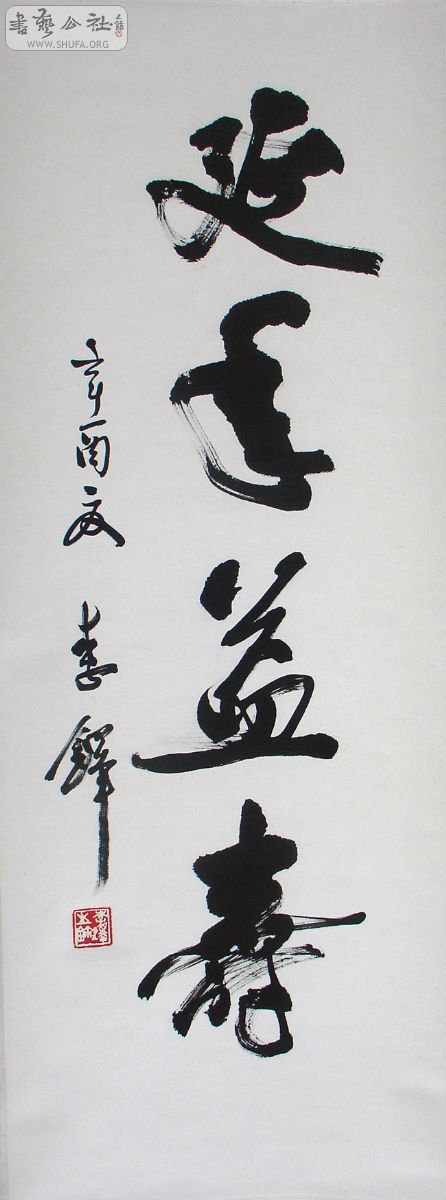 書藝公社
WWW.SHUFA.ORG
延年益壽
辛酉夏 李鐸